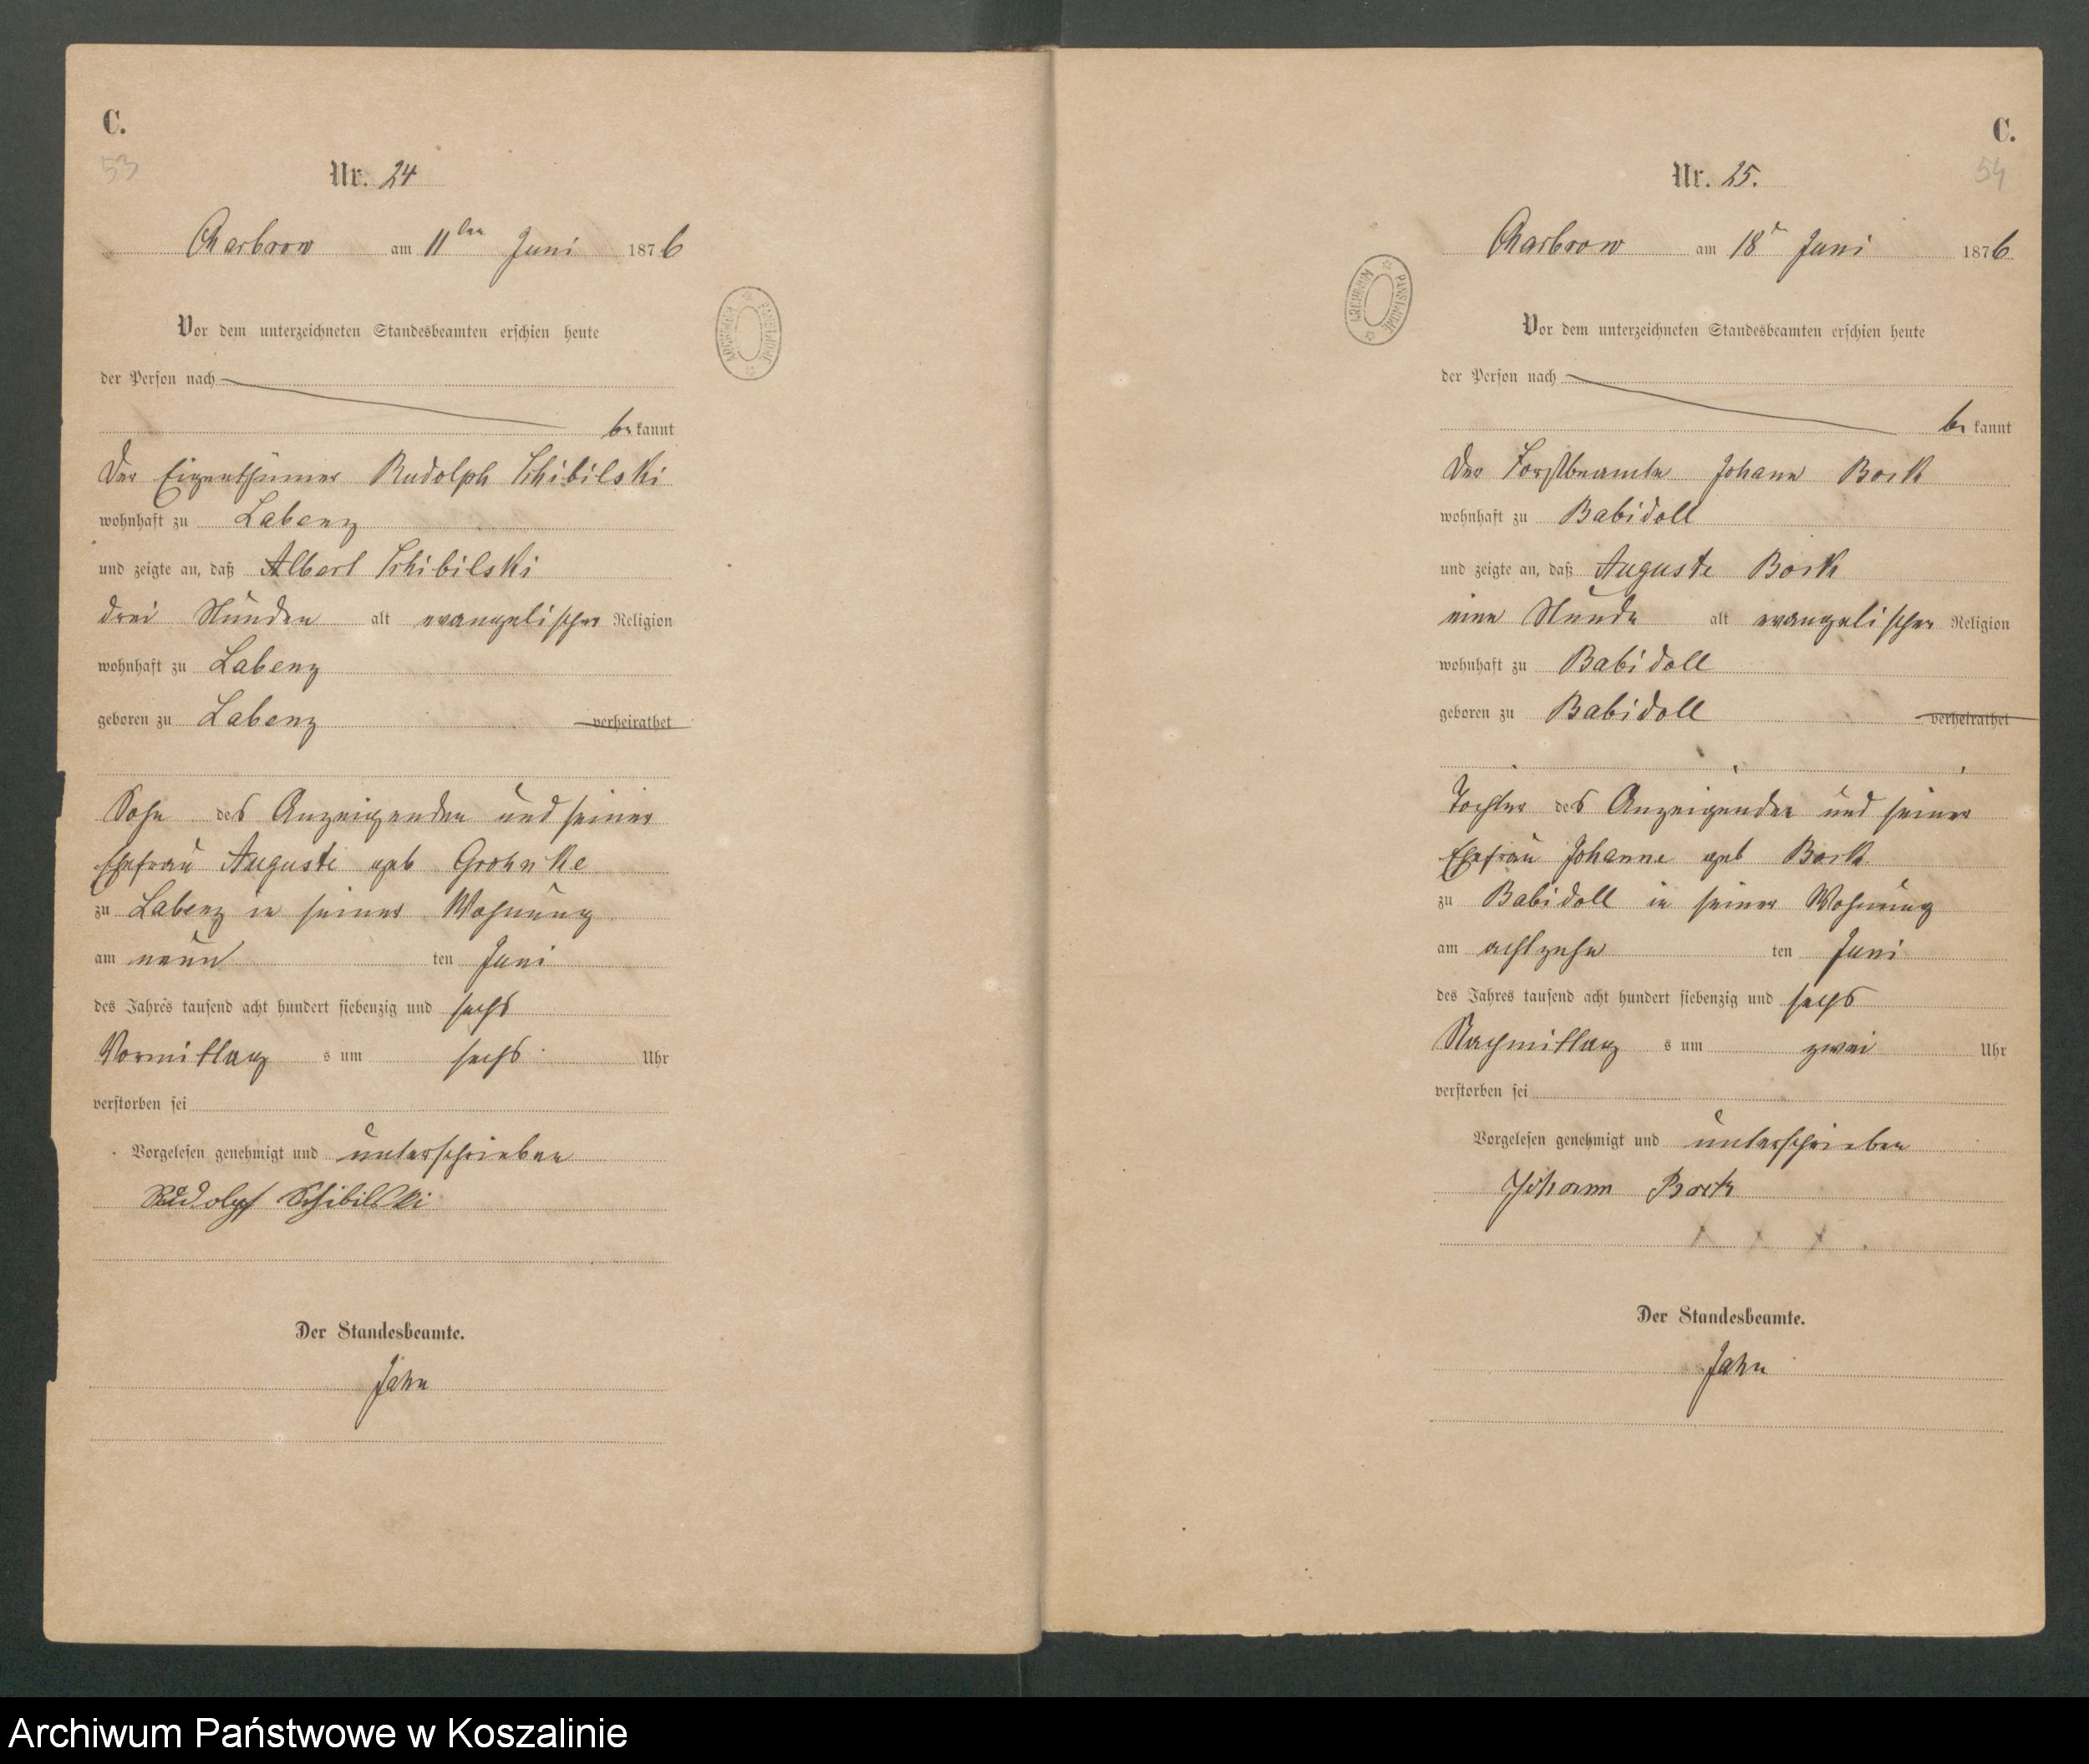 C.
53
Nr. 24
Charbrow am 11ten Juni 1876
Vor dem unterzeichneten Standesbeamten erschien heute
der Person nach
bekannt
Der Eigenthümer Rudolph Schibilski
wohnhaft zu Labenz
und zeigte an, daß Albert Schibilski
drei Stunden alt evangelischer Religion
wohnhaft zu Labenz
geboren zu Labenz verheirathet
Sohn des Anzeigenden und seiner
Ehefrau Auguste geb Grohnke
zu Labenz in seiner Wohnung
am neun ten Juni
des Jahres tausend acht hundert siebenzig und sechs
Vormittag s um sechs Uhr
verstorben sei
Vorgelesen genehmigt und unterschrieben
Rudolph Schibilski
Der Standesbeamte.
Jahn
ARCHIWUM PAŃSTWOWE
C.
54
Nr. 25.
Charbrow am 18t Juni 1876
Vor dem unterzeichneten Standesbeamten erschien heute
der Person nach
bekannt
Der Forstbeamte Johann Bork
wohnhaft zu Babidoll
und zeigte an, daß Auguste Bork
eine Stunde alt evangelischer Religion
wohnhaft zu Babidoll
geboren zu Babidoll verheirathet
Tochter des Anzeigenden und seiner
Ehefrau Johanne geb Bork
zu Babidoll in seiner Wohnung
am achtzehn ten Juni
des Jahres tausend acht hundert siebenzig und sechs
Nachmittag s um zwei Uhr
verstorben sei
Vorgelesen genehmigt und unterschrieben
Johann Bork
Der Standesbeamte.
Jahn
ARCHIWUM PAŃSTWOWE
Archiwum Państwowe w Koszalinie